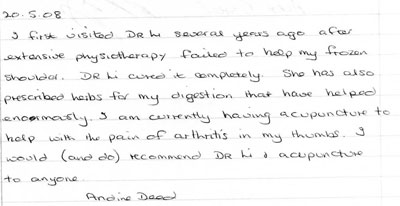 20.5.08
I first visited DR Li several years ago after
extensive physiotherapy failed to help my frozen
shoulder. DR Li cured it completely. She has also
prescribed herbs for my digestion that have helped
enormously. I am currently having acupuncture to
help with the pain of arthritis in my thumbs. I
would (and do) recommend DR Li & acupuncture
to anyone.